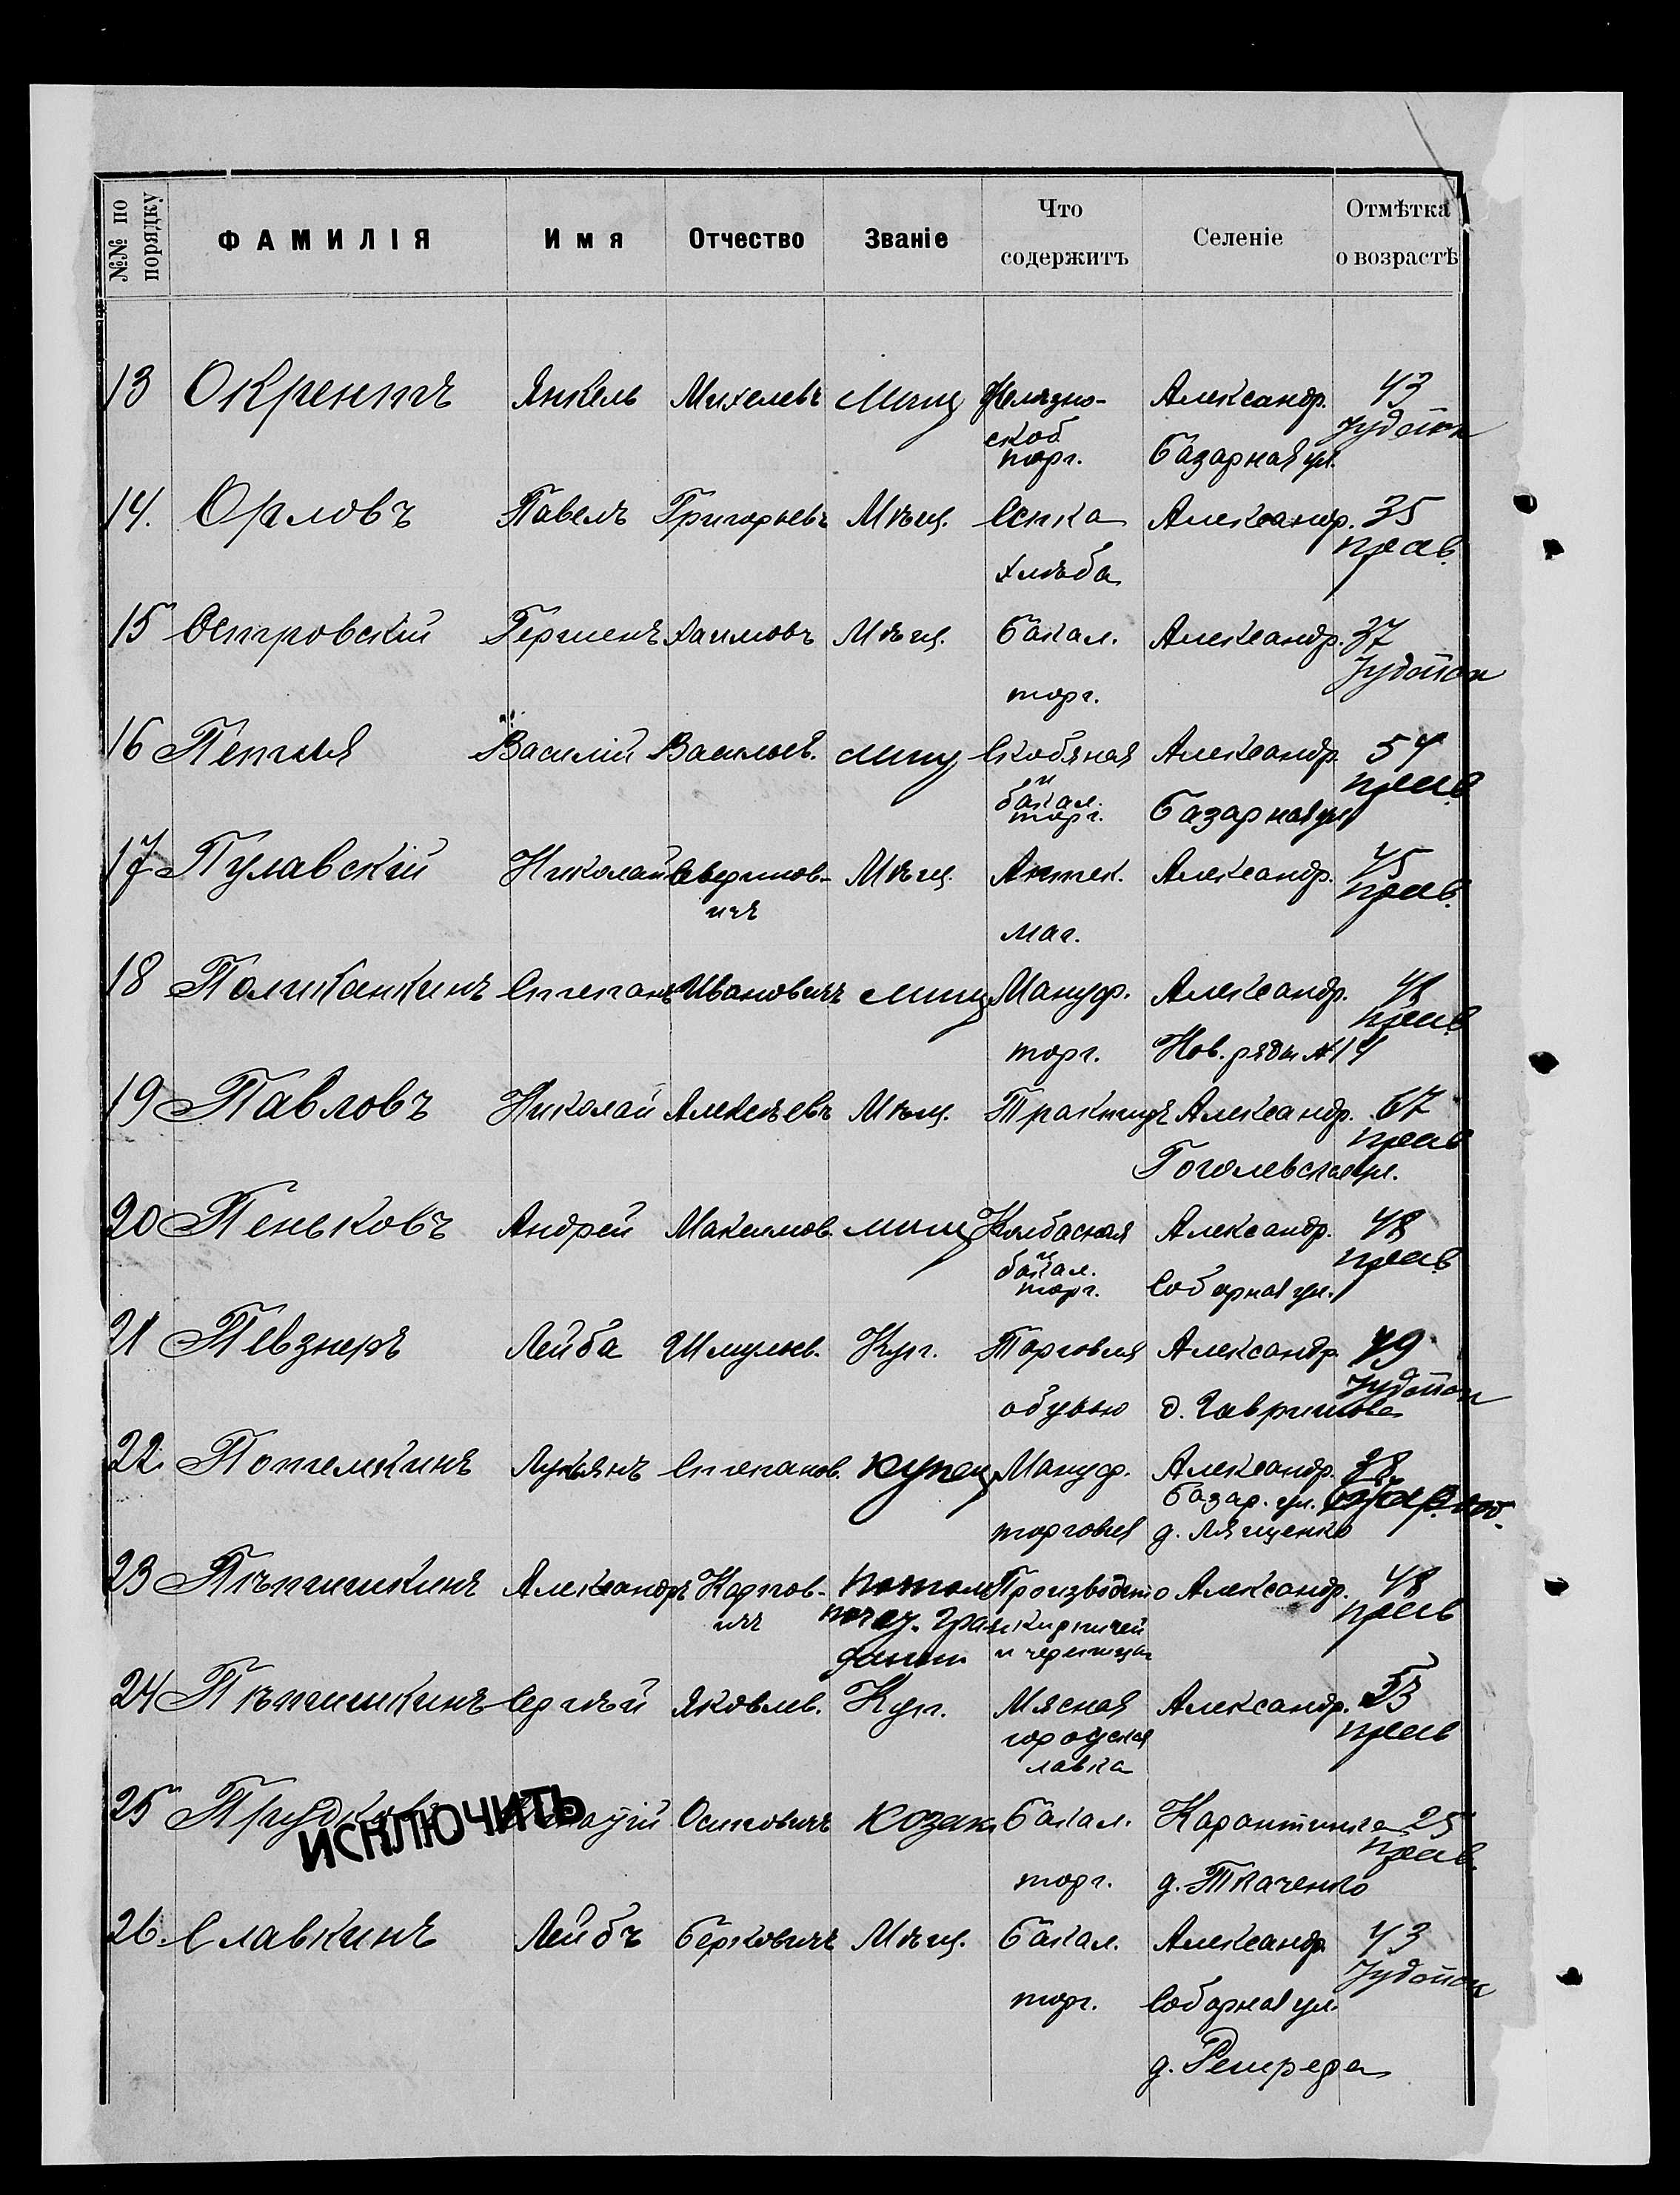 №№ по порядку ФАМИЛІЯ Имя Отчество Званіе Что содержитъ Селеніе Отмѣтка о возрастѣ
13 Окрентъ Янкель Михелевъ мѣщ Желѣзно- Александр. 43
скоб Іудейск
торг. Базарная ул.
14. Орловъ Павелъ Григорьевъ Мѣщ. Ссыпка Александр. 35
хлѣба прав.
15 Островскій Гершенъ Хаимовъ Мѣщ. Бакал. Александр. 37
торг. Іудейск
16 Петля Василій Васильев. мѣщ Скобяная Александр. 54
и прав
бакал.
торг. Базарная ул
17 Пулавскій Николай Аверинов- Мѣщ. Аптек. Александр. 45
ичъ маг. прав.
18 Поликанкинъ Степанъ Ивановичъ мѣщ Мануф. Александр.
прав
торг. Нов. ряды № 14
19 Павловъ Николай Алексѣевъ Мѣщ. Трактиръ Александр. 67
прав
Гоголевская ул.
20 Пеньковъ Андрей Максимов. мѣщ Колбасная Александр. 48
и прав
бакал.
торг. Соборная ул.
21 Певзнеръ Лейба Шмульев. Куп. Торговля Александр. 49
Іудейск
обувью д. Гавришова
22. Потемкинъ Лукьянъ Степанов. купец Мануф. Александр. 38
Базар. ул.
торговля д. Лященко
23 Пѣтишкинъ Александръ Карпов- потом Производство Александр. 48
ичъ поч. граж кирпичей прав
данин и черепицы
24 Пѣтишкинъ Сергѣй Яковлев. Куп. Мясная Александр. 53
городская прав
лавка
25 Осиповичъ козак Бакал. Карантинка 25
ИСКЛЮЧИТЬ прав.
торг. д. Ткаченко
26. Славкинъ Лейбъ Берковичъ Мѣщ. Бакал. Александр 43
Іудейск
торг. Соборная ул.
д. Рештреда